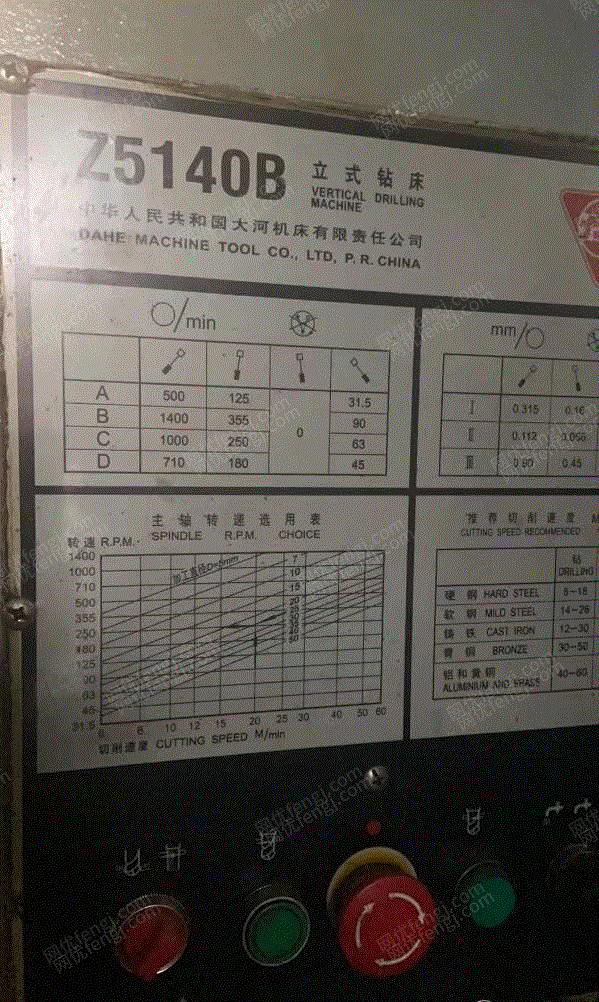 Z5140B
立式钻床
VERTICAL DRILLING
MACHINE
中华人民共和国大河机床有限责任公司
DAHE MACHINE TOOL CO., LTD, P.R. CHINA
/min
A 500 125 0 31.5
B 1400 355 90
C 1000 250 63
D 710 180 45
mm/
Ⅰ 0.315 0.16
Ⅱ 0.112
Ⅲ 0.45
主轴转速选用表
转速 R.P.M. SPINDLE R.P.M. CHOICE
加工直径D=5mm
7
10
15
1400
1000
710
500
355
250
180
125
90
63
45
31.5
6 8 10 12 15 20 25 30 40 50 60
切削速度 CUTTING SPEED M/min
推荐切削速度 M
CUTTING SPEED RECOMMENDED
钻
DRILLING
硬钢 HARD STEEL 8-18
软钢 MILD STEEL 14-26
铸铁 CAST IRON 12-30
青铜 BRONZE 30-50
铝和黄铜
ALUMINIUM AND BRASS 40-60
网优fengj.com
网优fengj.com